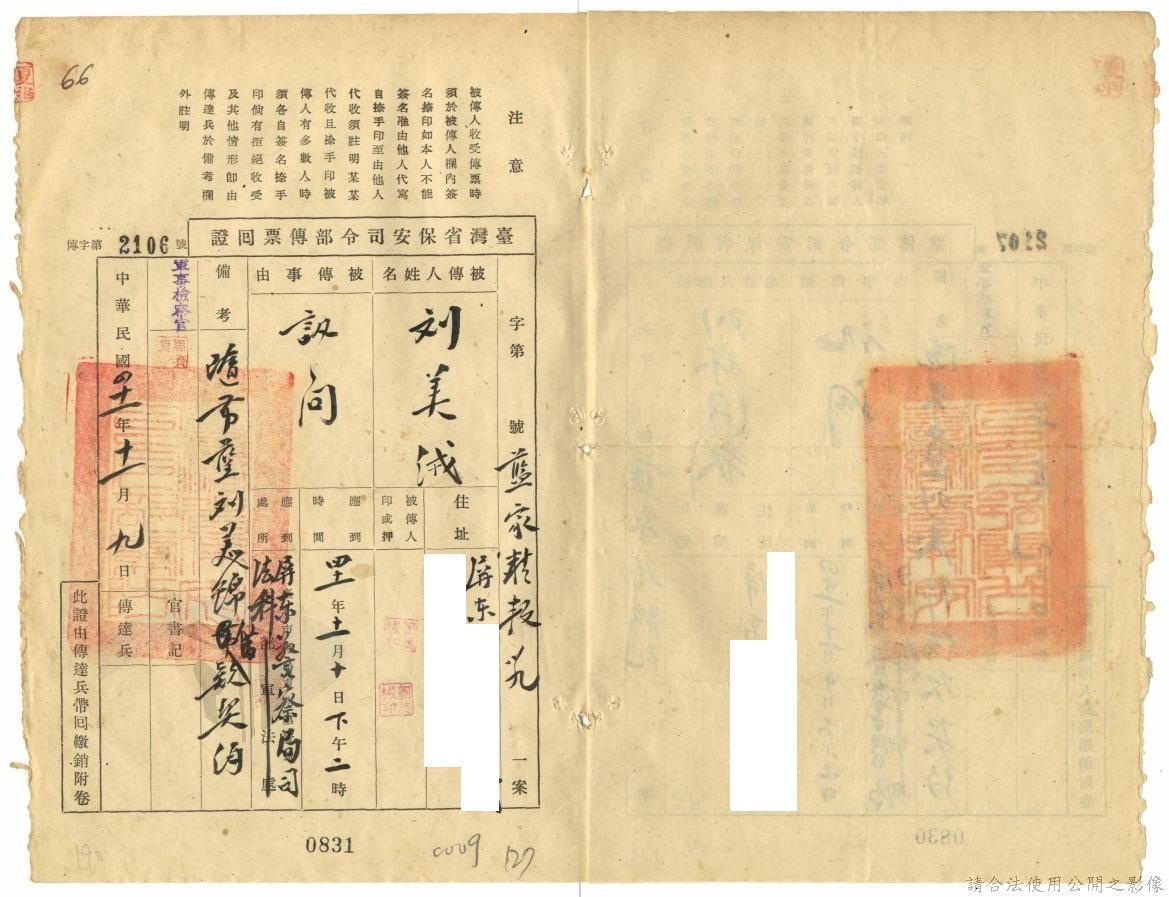 66
注意
被傳人收受傳票時
須於被傳人欄內簽
名捺印如本人不能
簽名准由他人代寫
自捺手印至由他人
代收須註明某某
代收且捺手印被
傳人有多數人時
須各自簽名捺手
印倘有拒絕收受
及其他情形卽由
傳達兵於備考欄
外註明
臺灣省保安司令部傳票回證
傳字第2106號
字第 號 藍家精叛亂 一案
被傳人姓名
刘美浅
住址
屏东
被傳人印或押
被傳事由
訊问
應到時間
四十一年十一月十日下午二時
應到處所
屏东警察局司法科
部軍法處
備考
隨帶蓋刘美錦借款契約
軍事檢察官
書記官
中華民國四十一年十一月九日
傳達兵
此證由傳達兵帶回繳銷附卷
0831
0009
127
190
2107
0830
請合法使用公開之影像